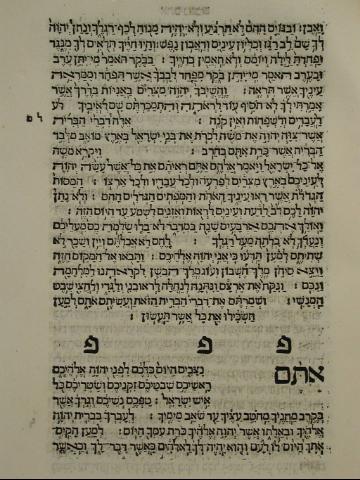 ואבן : ובגוים ההם לא תרגיע ולא יהיה מנוח לכף רגלך ונתן יהוה
לך שם לב רגז וכליון עינים ודאבון נפש : והיו חייך תלאים לך מנגד
ופחדת לילה ויומם ולא תאמין בחייך : בבקר תאמר מי יתן ערב
ובערב תאמר מי יתן בקר מפחד לבבך אשר תפחד וממראה
עיניך אשר תראה : והשיבך יהוה מצרים באניות בדרך אשר
אמרתי לך לא תסיף עוד לראתה והתמכרתם שם לאיביך
לעבדים ולשפחות ואין קנה : אלה דברי הברית
אשר צוה יהוה את משה לכרת את בני ישראל בארץ מואב מלבד
הברית אשר כרת אתם בחרב : ויקרא משה
אל כל ישראל ויאמר אלהם אתם ראיתם את כל אשר עשה יהוה
לעיניכם בארץ מצרים לפרעה ולכל עבדיו ולכל ארצו : המסות
הגדלת אשר ראו עיניך האתת והמפתים הגדלים ההם : ולא נתן
יהוה לכם לב לדעת ועינים לראות ואזנים לשמע עד היום הזה :
ואולך אתכם ארבעים שנה במדבר לא בלו שלמתיכם מעליכם
ונעלך לא בלתה מעל רגלך : לחם לא אכלתם ויין ושכר לא
שתיתם למען תדעו כי אני יהוה אלהיכם : ותבאו אל המקום הזה
ויצא סיחן מלך חשבון ועוג מלך הבשן לקראתנו למלחמה
ונכם : ונקח את ארצם ונתנה לנחלה לראובני ולגדי ולחצי שבט
המנשי : ושמרתם את דברי הברית הזאת ועשיתם אתם למען
תשכילו את כל אשר תעשון :
פ פ פ
אתם נצבים היום כלכם לפני יהוה אלהיכם
ראשיכם שבטיכם זקניכם ושטריכם כל
איש ישראל : טפכם נשיכם וגרך אשר
בקרב מחניך מחטב עציך עד שאב מימיך : לעברך בברית יהוה
אלהיך ובאלתו אשר יהוה אלהיך כרת עמך היום : למען הקים
אתך היום לו לעם והוא יהיה לך לאלהים כאשר דבר לך וכאשר